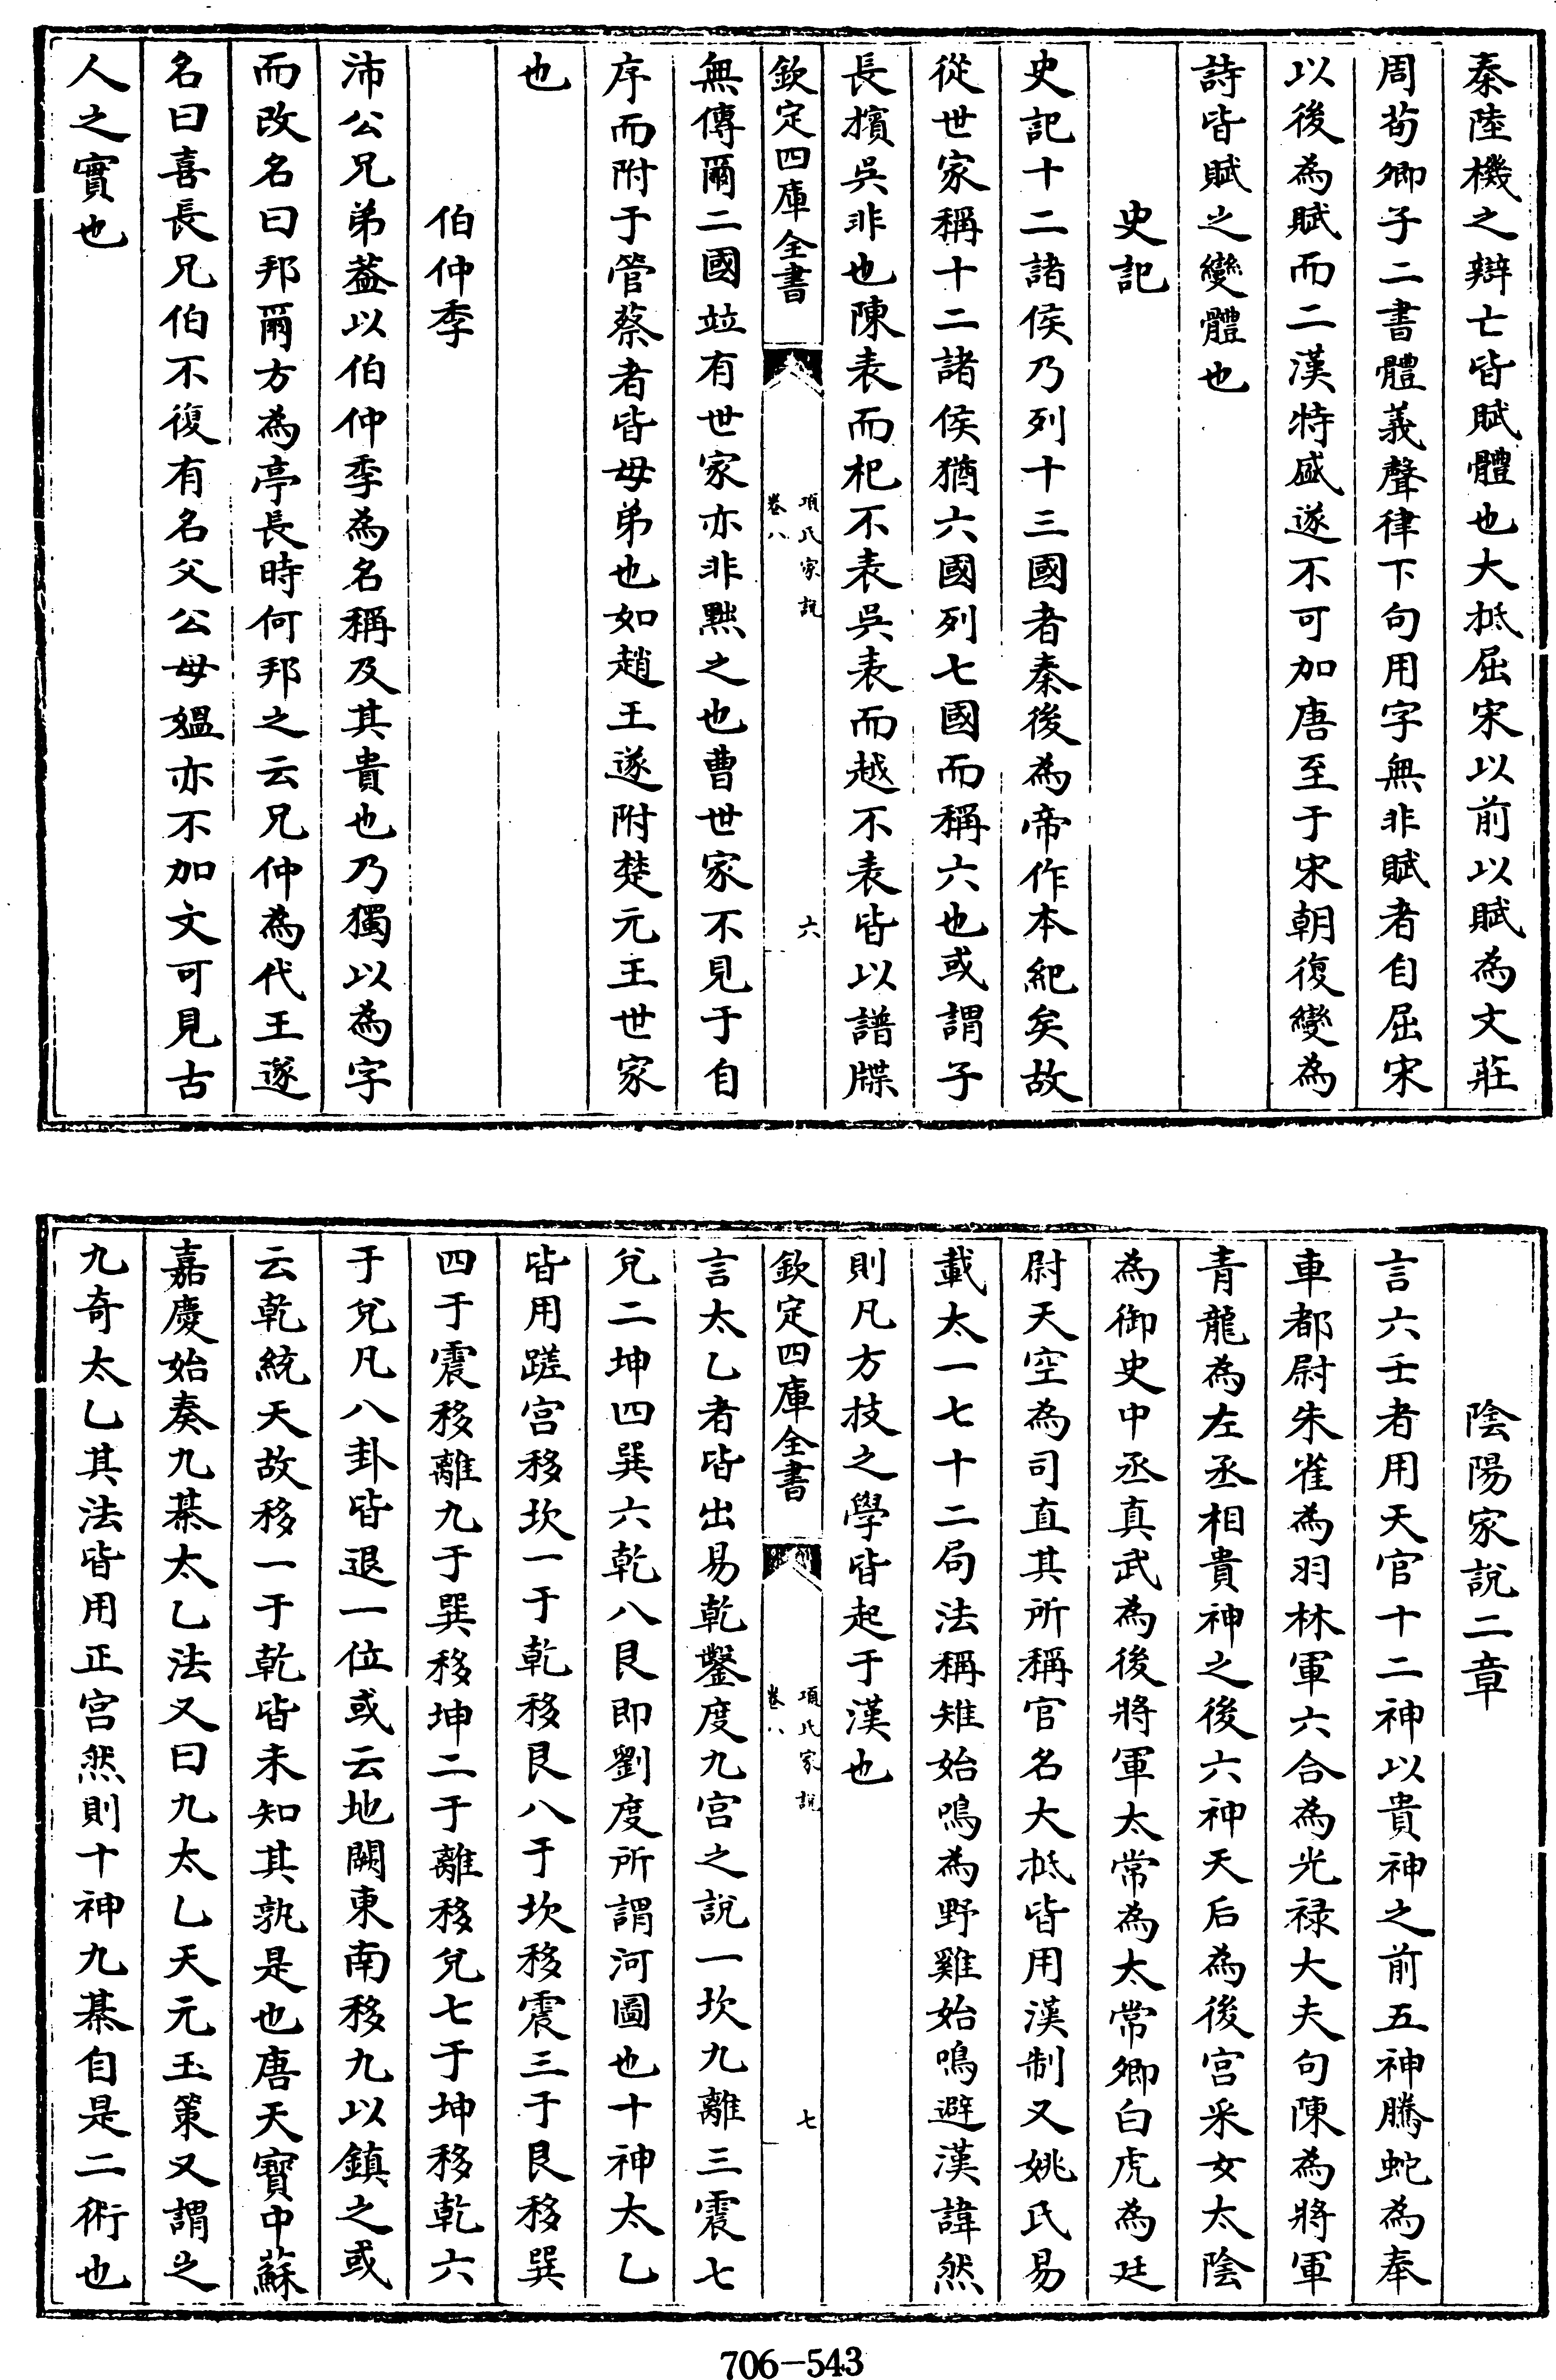 秦陸機之辯亡皆賦體也大抵屈宋以前以賦為文莊
周荀卿子二書體義聲律下句用字無非賦者自屈宋
以後為賦而二漢特盛遂不可加唐至于宋朝復變為
詩皆賦之變體也
史記
史記十二諸侯乃列十三國者秦後為帝作本紀矣故
從世家稱十二諸侯猶六國列七國而稱六也或謂子
長擯吳非也陳表而杞不表吳表而越不表皆以譜牒
欽定四庫全書
項氏家說
卷八
六
無傳爾二國竝有世家亦非黜之也曹世家不見于自
序而附于管蔡者皆母弟也如趙王遂附楚元王世家
也
伯仲季
沛公兄弟葢以伯仲季為名稱及其貴也乃獨以為字
而改名曰邦爾方為亭長時何邦之云兄仲為代王遂
名曰喜長兄伯不復有名父公母媼亦不加文可見古
人之實也
陰陽家說二章
言六壬者用天官十二神以貴神之前五神騰蛇為奉
車都尉朱雀為羽林軍六合為光禄大夫句陳為將軍
青龍為左丞相貴神之後六神天后為後宮采女太陰
為御史中丞真武為後將軍太常為太常卿白虎為廷
尉天空為司直其所稱官名大抵皆用漢制又姚氏易
載太一七十二局法稱雉始鳴為野雞始鳴避漢諱然
則凡方技之學皆起于漢也
欽定四庫全書
項氏家說
卷八
七
言太乙者皆出易乾鑿度九宮之說一坎九離三震七
兌二坤四巽六乾八艮即劉度所謂河圖也十神太乙
皆用蹉宮移坎一于乾移艮八于坎移震三于艮移巽
四于震移離九于巽移坤二于離移兌七于坤移乾六
于兌凡八卦皆退一位或云地闕東南移九以鎮之或
云乾統天故移一于乾皆未知其孰是也唐天寶中蘇
嘉慶始奏九綦太乙法又曰九太乙天元玉策又謂之
九奇太乙其法皆用正宮然則十神九綦自是二術也
706-543